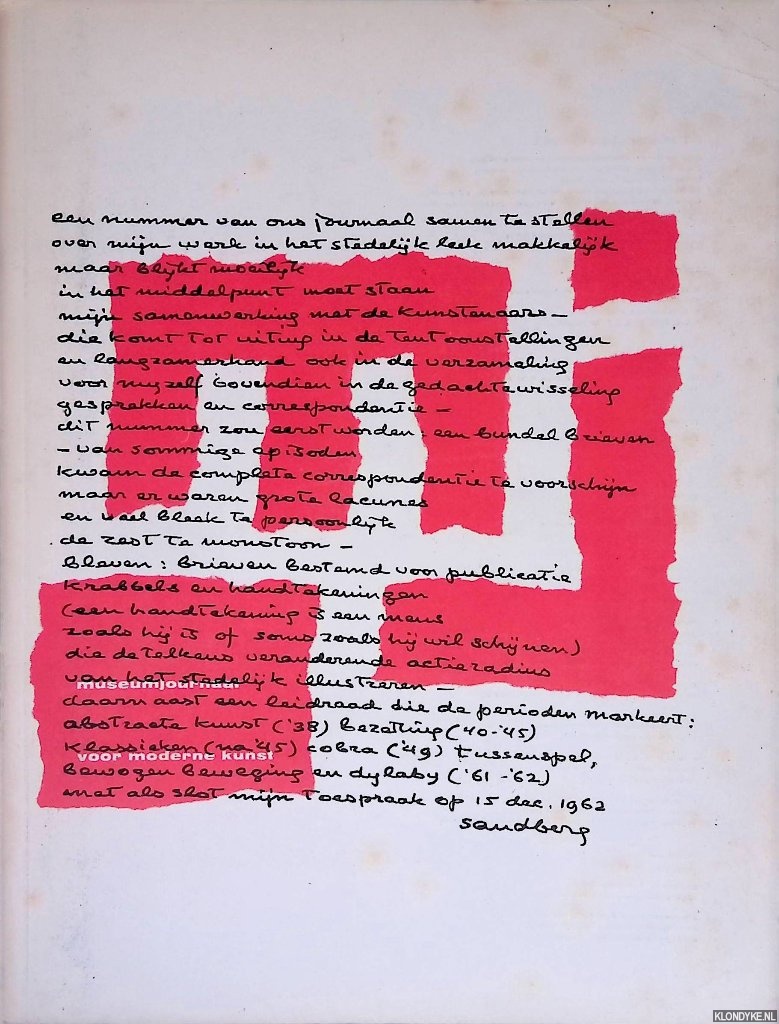 een nummer van ons journaal samen te stellen
over mijn werk in het stedelijk leek makkelijk
maar blijkt moeilijk
in het middelpunt moet staan
mijn samenwerking met de kunstenaars –
die komt tot uiting in de tentoonstellingen
en langzamerhand ook in de verzameling
voor mijzelf bovendien in de gedachtewisseling
gesprekken en correspondentie –
dit nummer zou eerst worden: een bundel brieven
– van sommige episoden
kwam de complete correspondentie te voorschijn
maar er waren grote lacunes
en veel bleek te persoonlijk
de rest te monotoon –
bleven: brieven bestemd voor publicatie
krabbels en handtekeningen
(een handtekening is een mens
zoals hij is of soms zoals hij wil schijnen)
die de telkens veranderende actieradius
van het stedelijk illustreren –
museumjournaal
daarnaast een leidraad die de perioden markeert:
abstracte kunst ('38) bezetting ('40-'45)
klassieken (na '45) cobra ('49) tussenspel,
voor moderne kunst
bewogen beweging en dylaby ('61-'62)
met als slot mijn toespraak op 15 dec. 1962
sandberg
KLONDYKE.NL